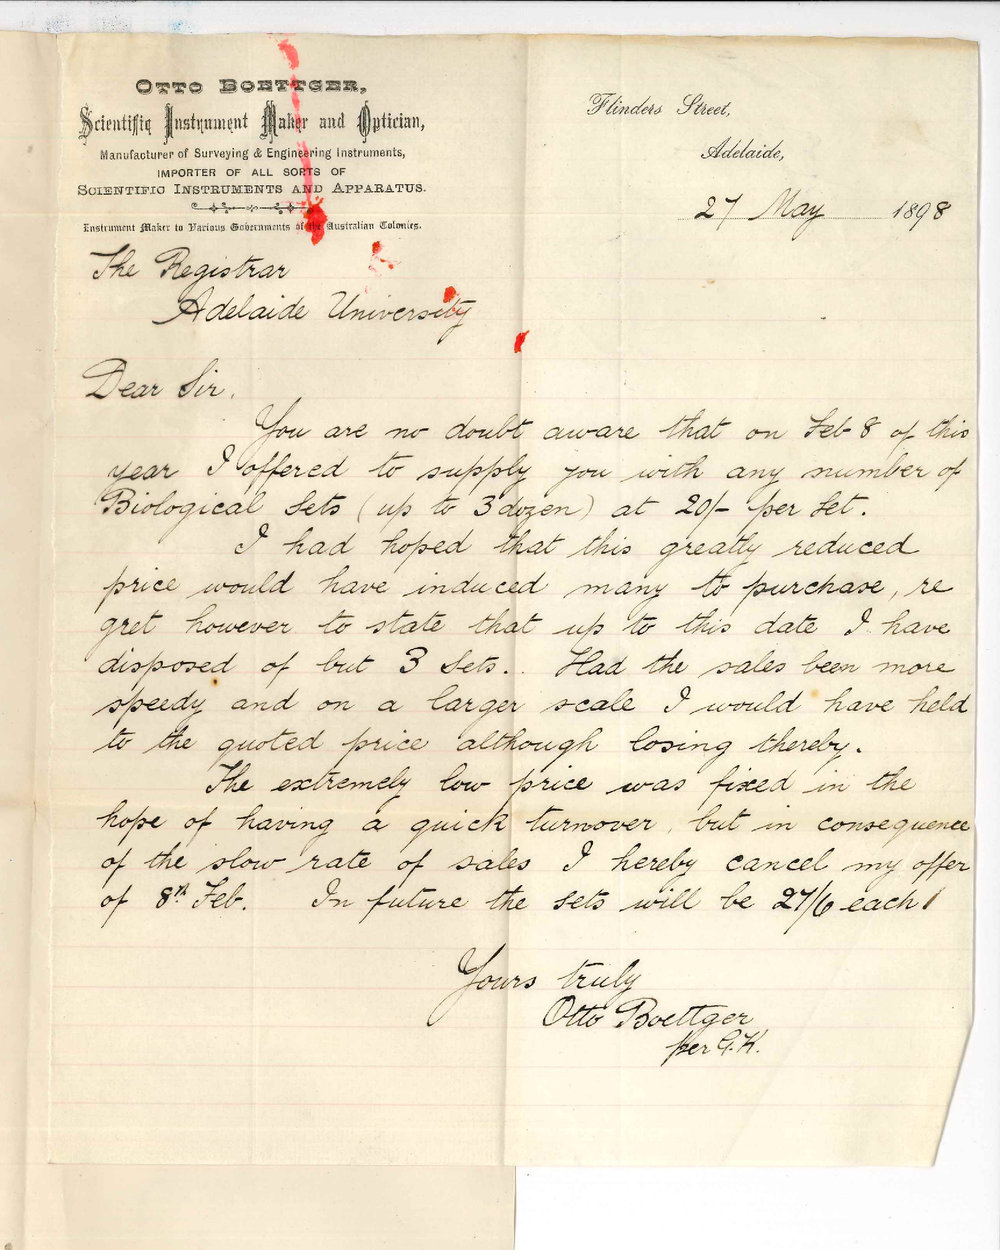 OTTO BOETTGER,
Scientific Instrument Maker and Optician,
Manufacturer of Surveying & Engineering Instruments,
IMPORTER OF ALL SORTS OF
SCIENTIFIC INSTRUMENTS AND APPARATUS.
Instrument Maker to Various Governments of the Australian Colonies.
Flinders Street,
Adelaide,
27 May 1898
The Registrar
Adelaide University
Dear Sir.
You are no doubt aware that on Feb 8 of this
year I offered to supply you with any number of
Biological Sets (up to 3 dozen) at 20/- per set.
I had hoped that this greatly reduced
price would have induced many to purchase, re
gret however to state that up to this date I have
disposed of but 3 Sets. Had the sales been more
speedy and on a larger scale I would have held
to the quoted price although losing thereby.
The extremely low price was fixed in the
hope of having a quick turnover, but in consequence
of the slow rate of sales I hereby cancel my offer
of 8th Feb. In future the sets will be 27/6 each
Yours truly
Otto Boettger
per G.K.